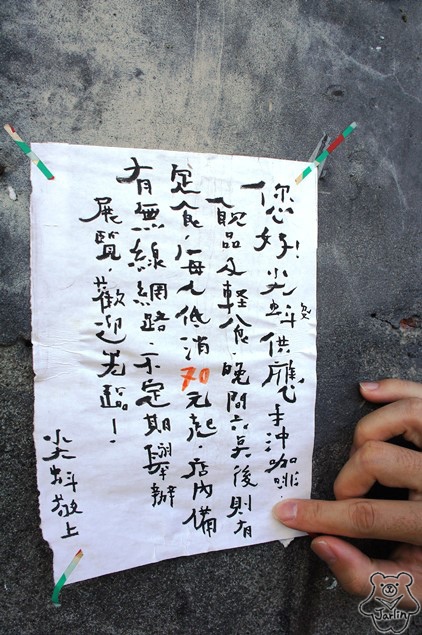 您好!尖蚪供應手沖咖啡.
飲品及輕食.晚間六点後則有
定食,每人低消70元起 店內備
有無線網路.不定期舉辦
展覽.歡迎光臨!
尖蚪敬上
Jarlin